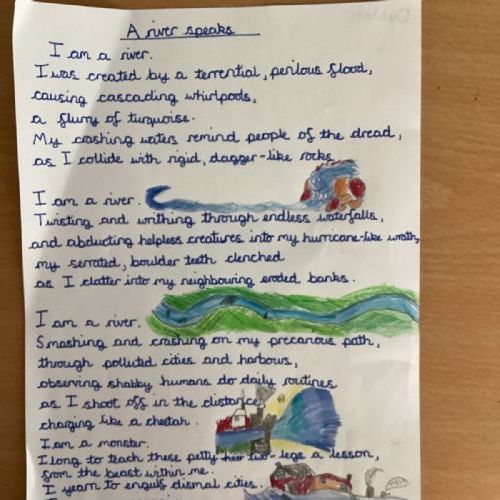 A river speaks
I am a river.
I was created by a terrential, perilous flood,
causing cascading whirlpools,
a flurry of turquoise.
My crashing waters remind people of the dread,
as I collide with rigid, dagger-like rocks
I am a river.
Twisting and writhing through endless waterfalls,
and abducting helpless creatures into my hurricane-like wrath,
my serrated, boulder teeth clenched
as I clatter into my neighbouring eroded banks.
I am a river.
Smashing and crashing on my precarious path,
through polluted cities and harbours,
observing shabby humans do daily routines
as I shoot off in the distance,
charging like a cheetah.
I am a monster.
I long to teach these petty two-legs a lesson,
from the beast within me.
I yearn to engulf dismal cities.